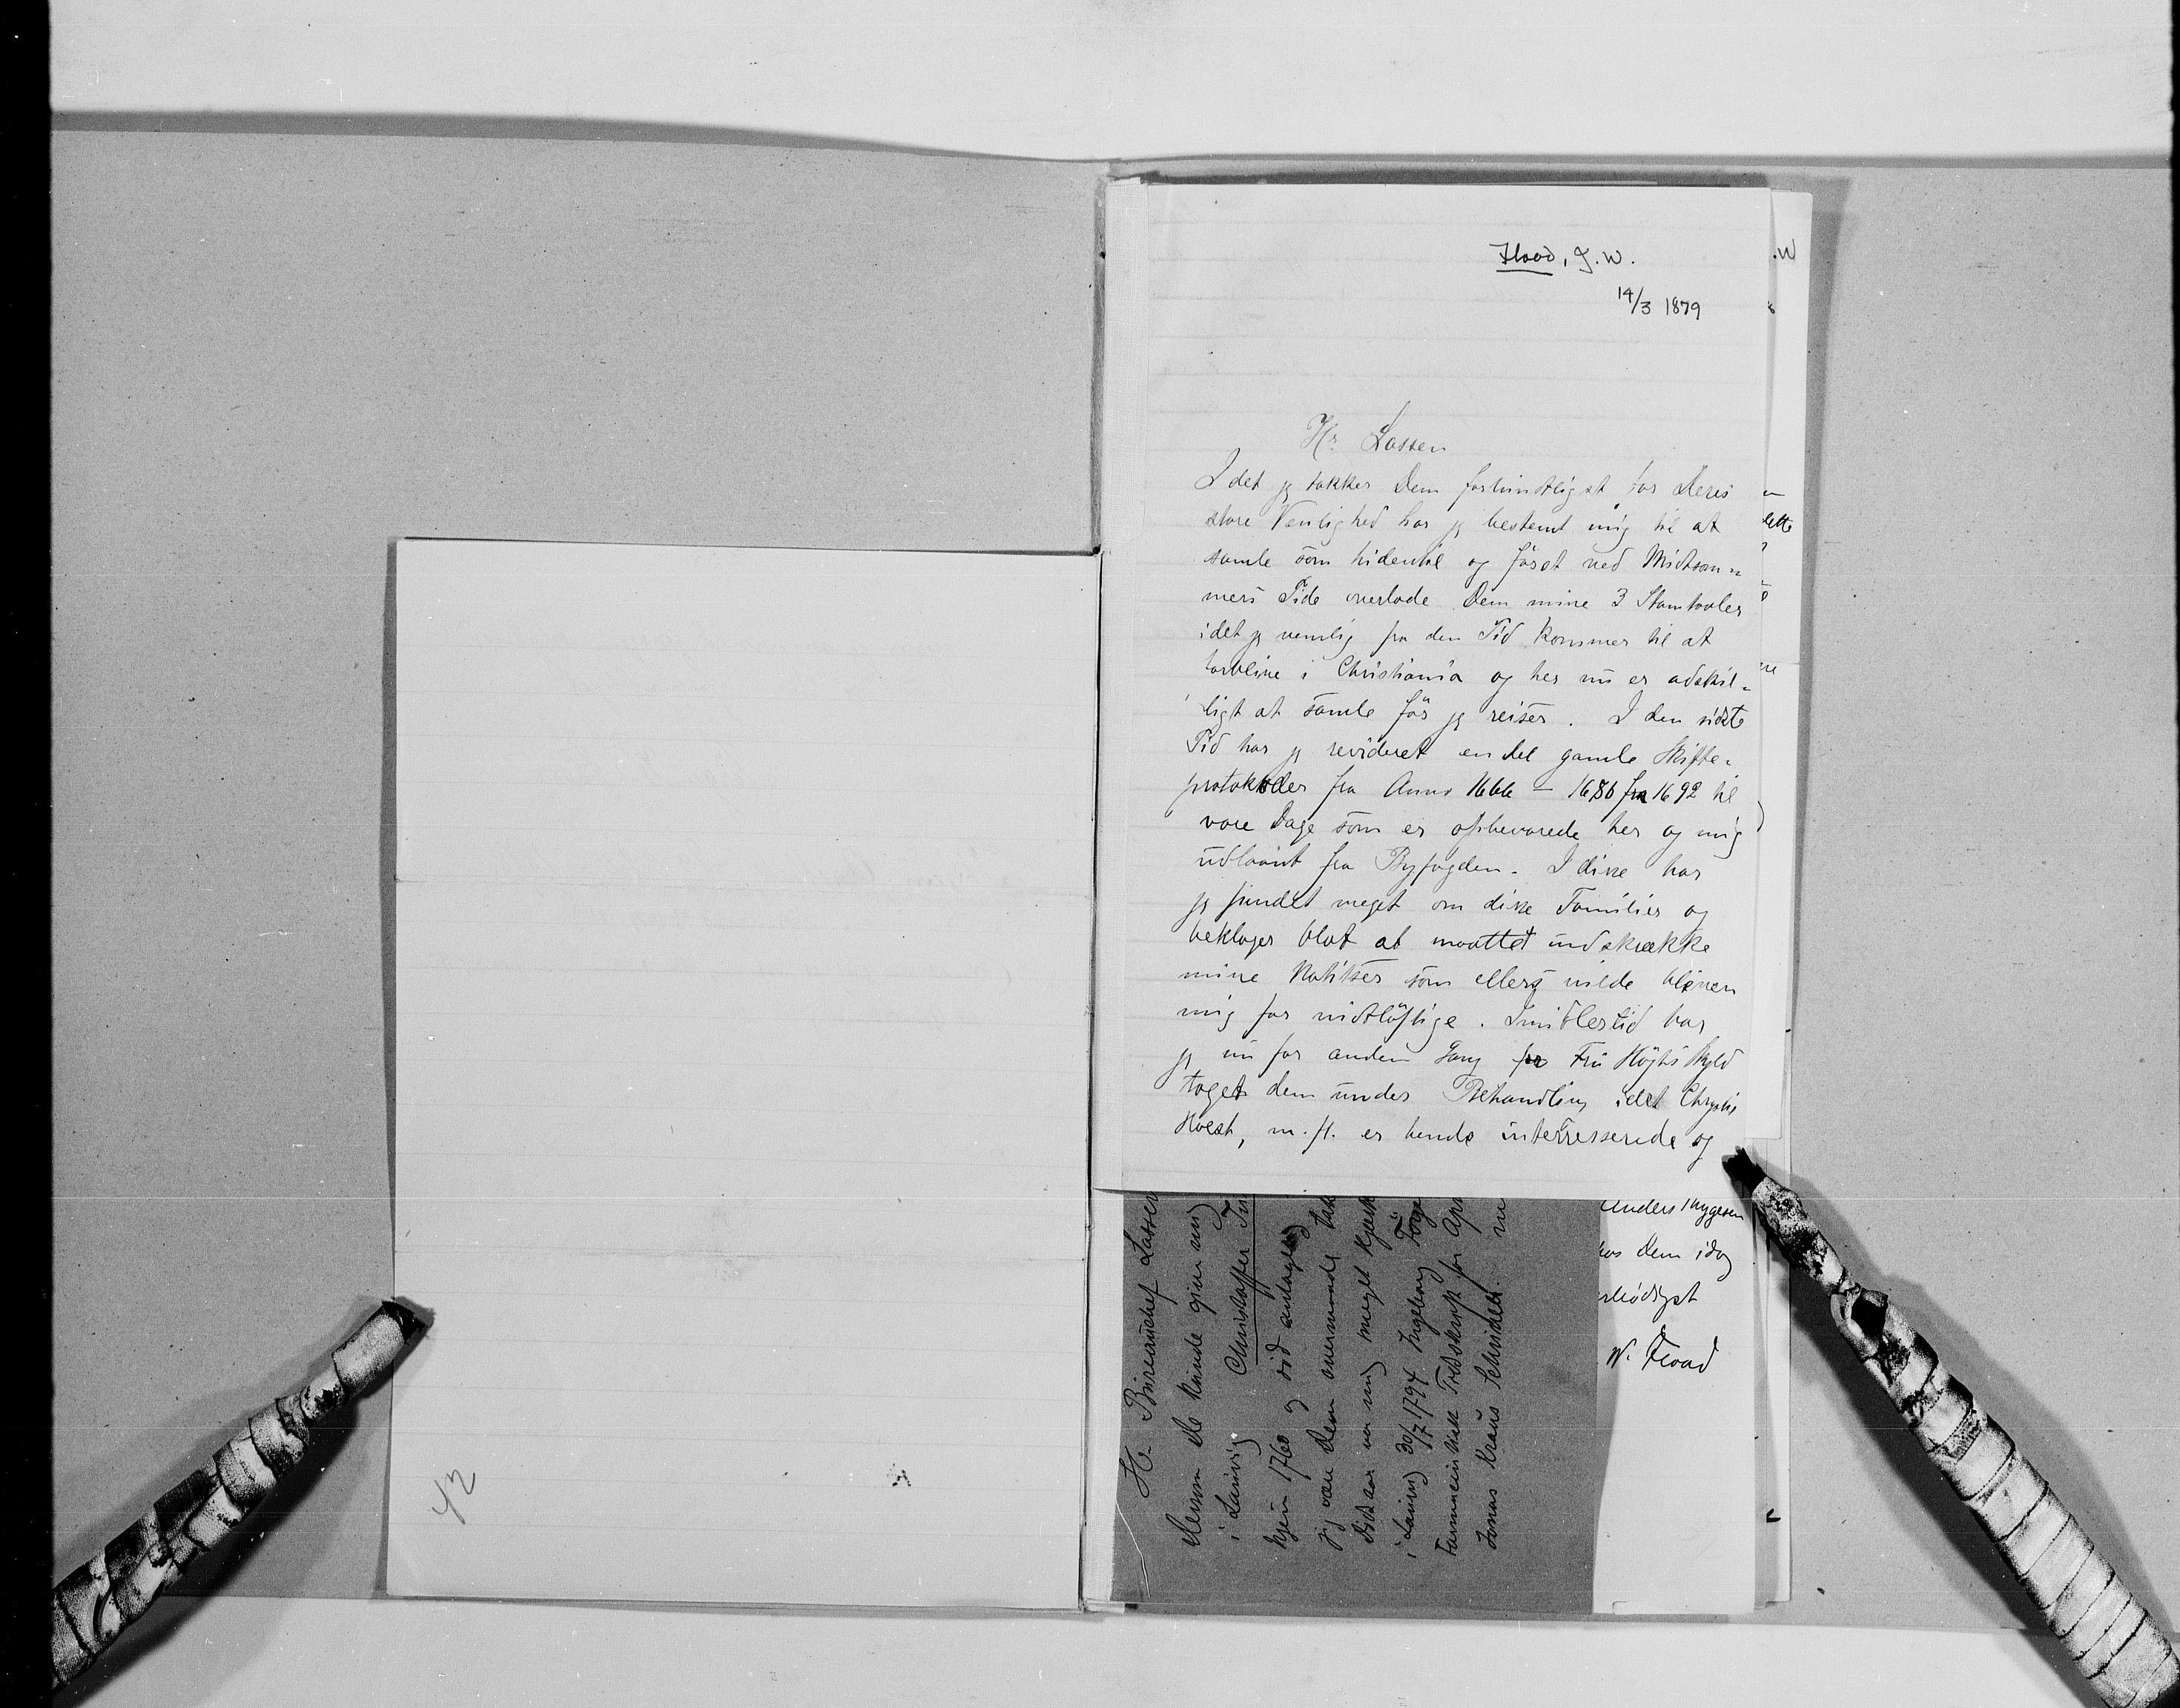 Flood, J.W.
14/3 1879
Hr. Lassen
I det jg takker Dem forbindtligst for Deres
store Venlighed har jg bestemt mig til at
samle som hidentil og først ved Midtsom-
mers Tide overlade Dem mine 3 Stamtavler
idet jg nemlig fra den Tid kommer til at
forblive i Christiania og her nu er adskil-
ligt at samle før jg reiser. I den sidste
Tid har jg revideret en del gamle Skifte-
protokoller fra Anno 1666 - 1686 fra 1692 til
vore Dage som er opbevarede her og mig
udlaant fra Byfogden. I disse har
jg fundet meget om disse Familier og
beklager blot at maattet indskrække
mine Notitser som ellers vilde bliven
mig for vidtløftige. Imidlertid har
jg nu for anden Gang for Fru Höyts Skyld
taget dem under Behandling idet Chrystie
Hoest, m. fl. er hende interresserede og
Anders Thygesen
hos Dem idag
W. Flood
Hr. Bureauchef Lassen
Dersom De kunde give mig
i Laurvig Christoffer
1760 og vid antagelig
jg være Dem overmaade tak
Sidst var mig meget kjærk
i Laurvig 30/7 1794 Ingeborg
Tidsskrift for
Jonas Kraus Schvidder
.W
42